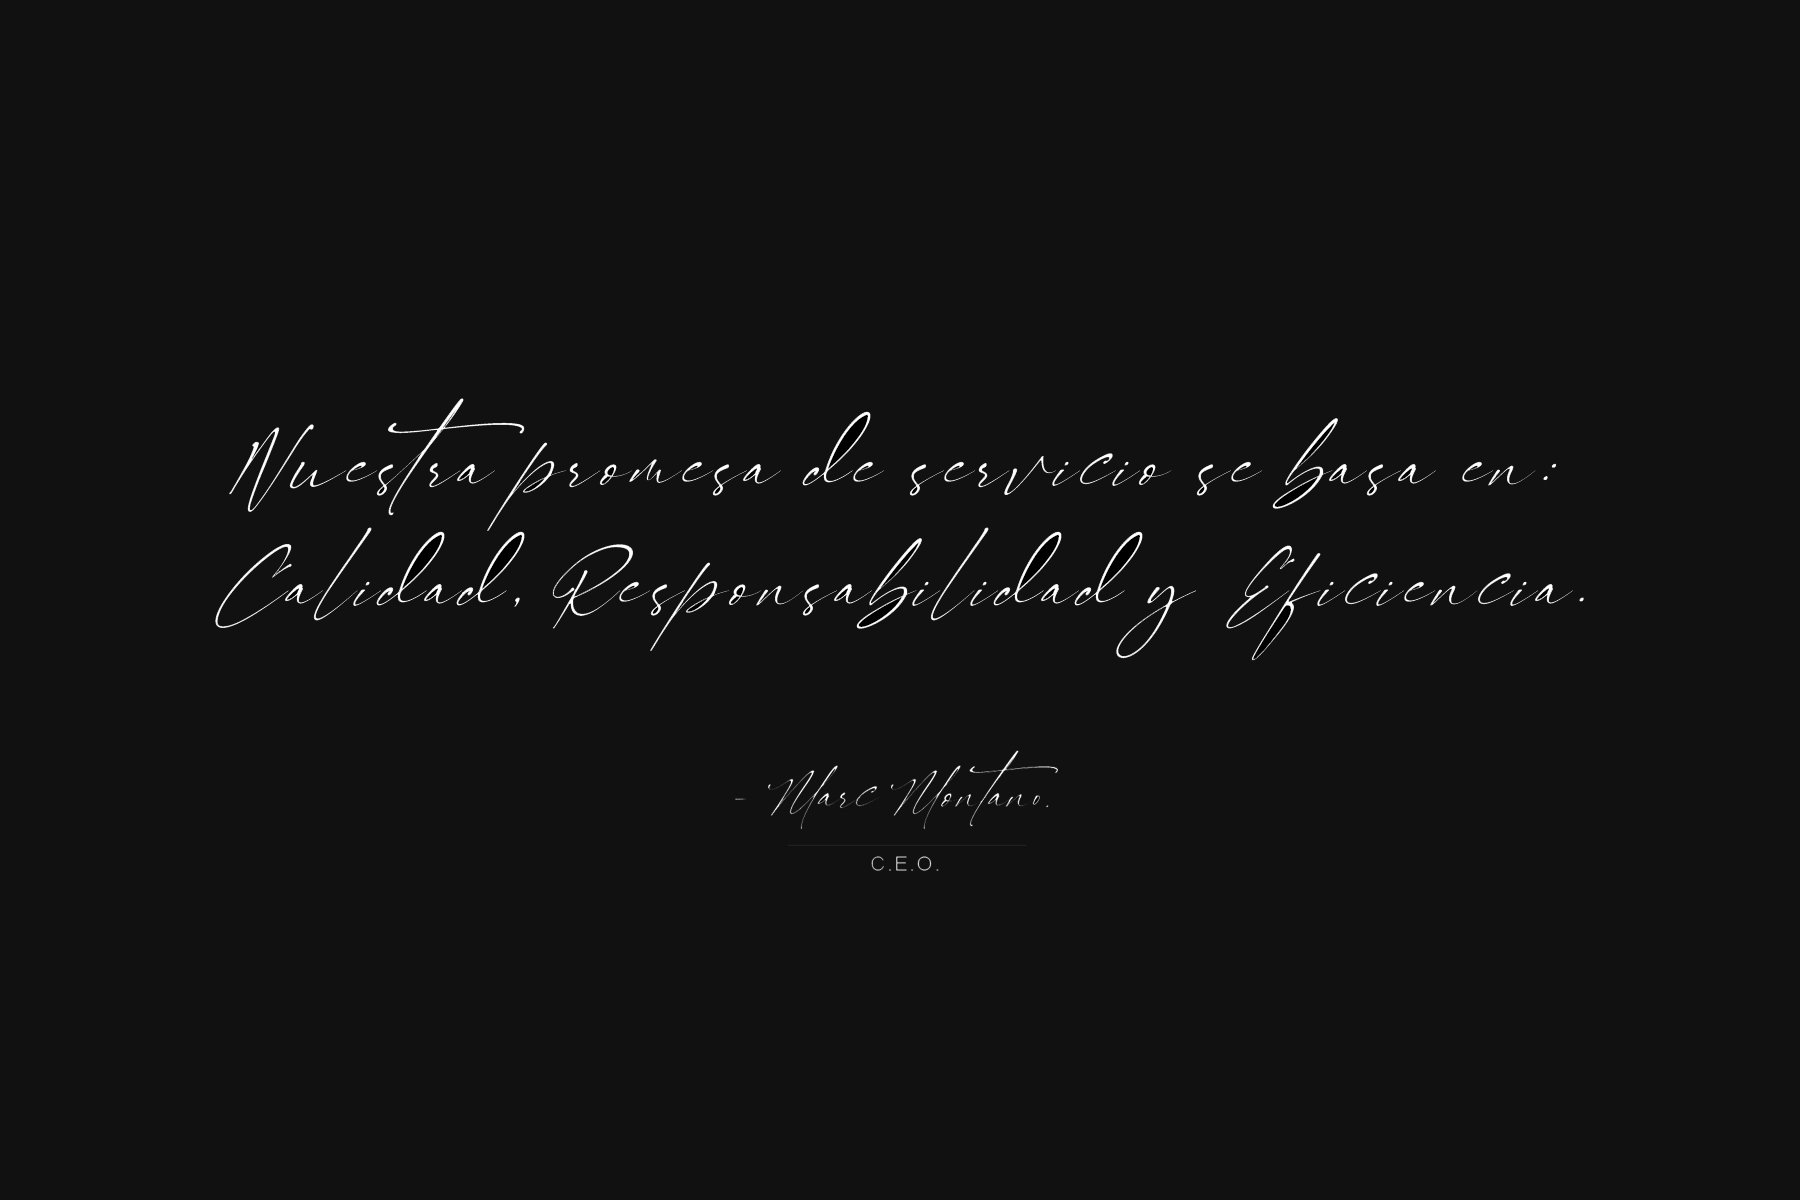 Nuestra promesa de servicio se basa en:
Calidad, Responsabilidad y Eficiencia.
- Marc Montano.
C.E.O.